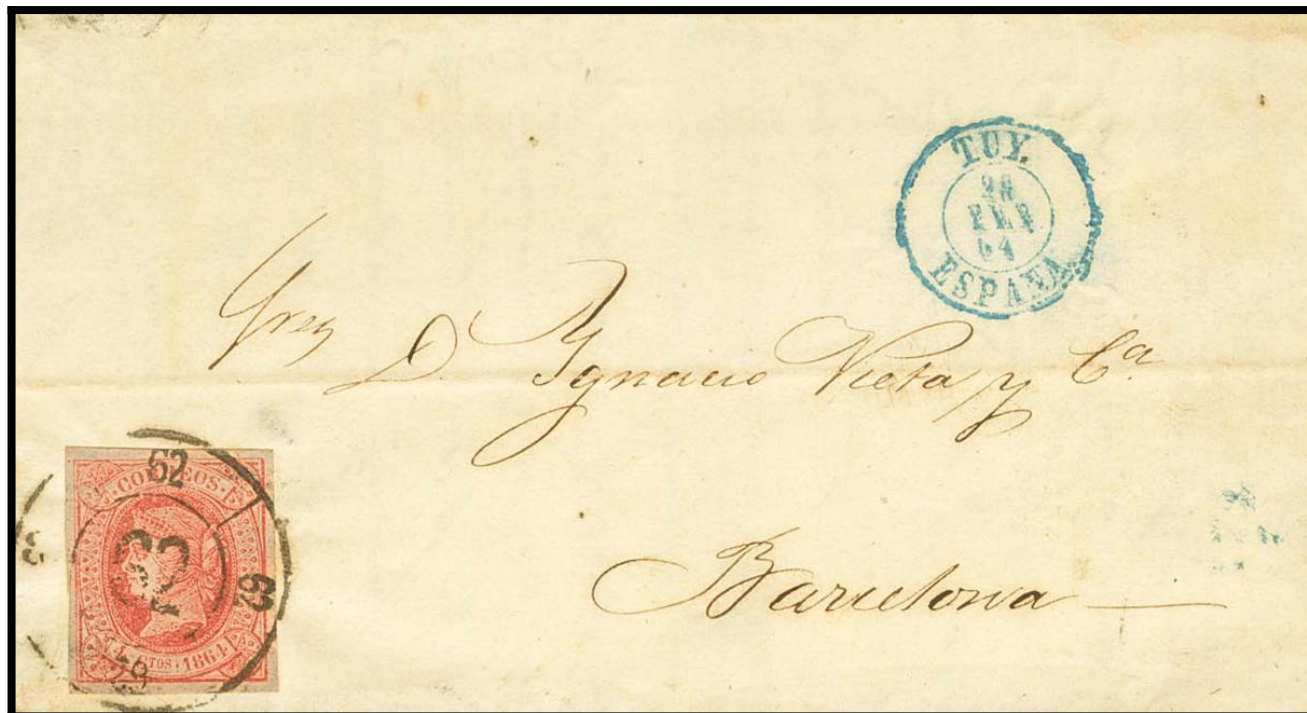 TUY.
28
FEB
64
ESPAÑA
Sres
D. Ygnacio Vieta y Cª
Barcelona
62
CORREOS
4 CTOS 1864